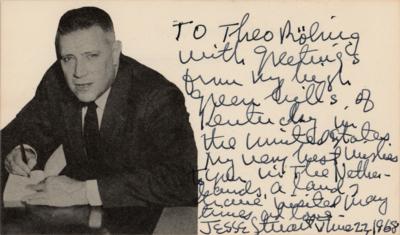 TO Theo Röhrig
with greetings
from my high
green hills, of
Kentucky in
the United States
My very best wishes
to you in The Nether-
lands, a land
I have visited many
times,
JESSE Stuart June 22, 1968